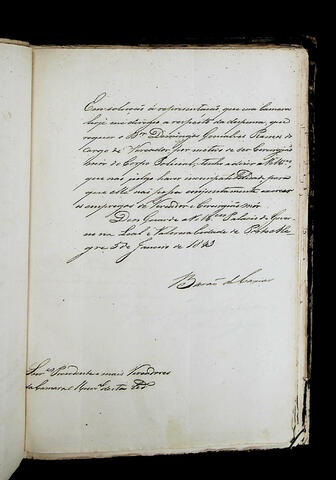 Em solução á representação, que essa Camara
hoje me dirigio a respeito da dispensa, que
requer o Dor Domingos Gonsalves Ramos do
Cargo de Vereador por motivo de ser Cirurgião
mór do Corpo Policial, tenho a dizer a
que não julgo haver incompatibilidade para
que elle não possa conjuntamente exercer
os empregos de Vereador e Cirurgião mór.
Deos Guarde a V. Mces Palacio do Gover
no na Leal e Valorosa Cidade de Porto Ale
gre 5 de Janeiro de 1843
Barão de Caxias
Snres Presidente e mais Vereadores
da Camara Municipal desta